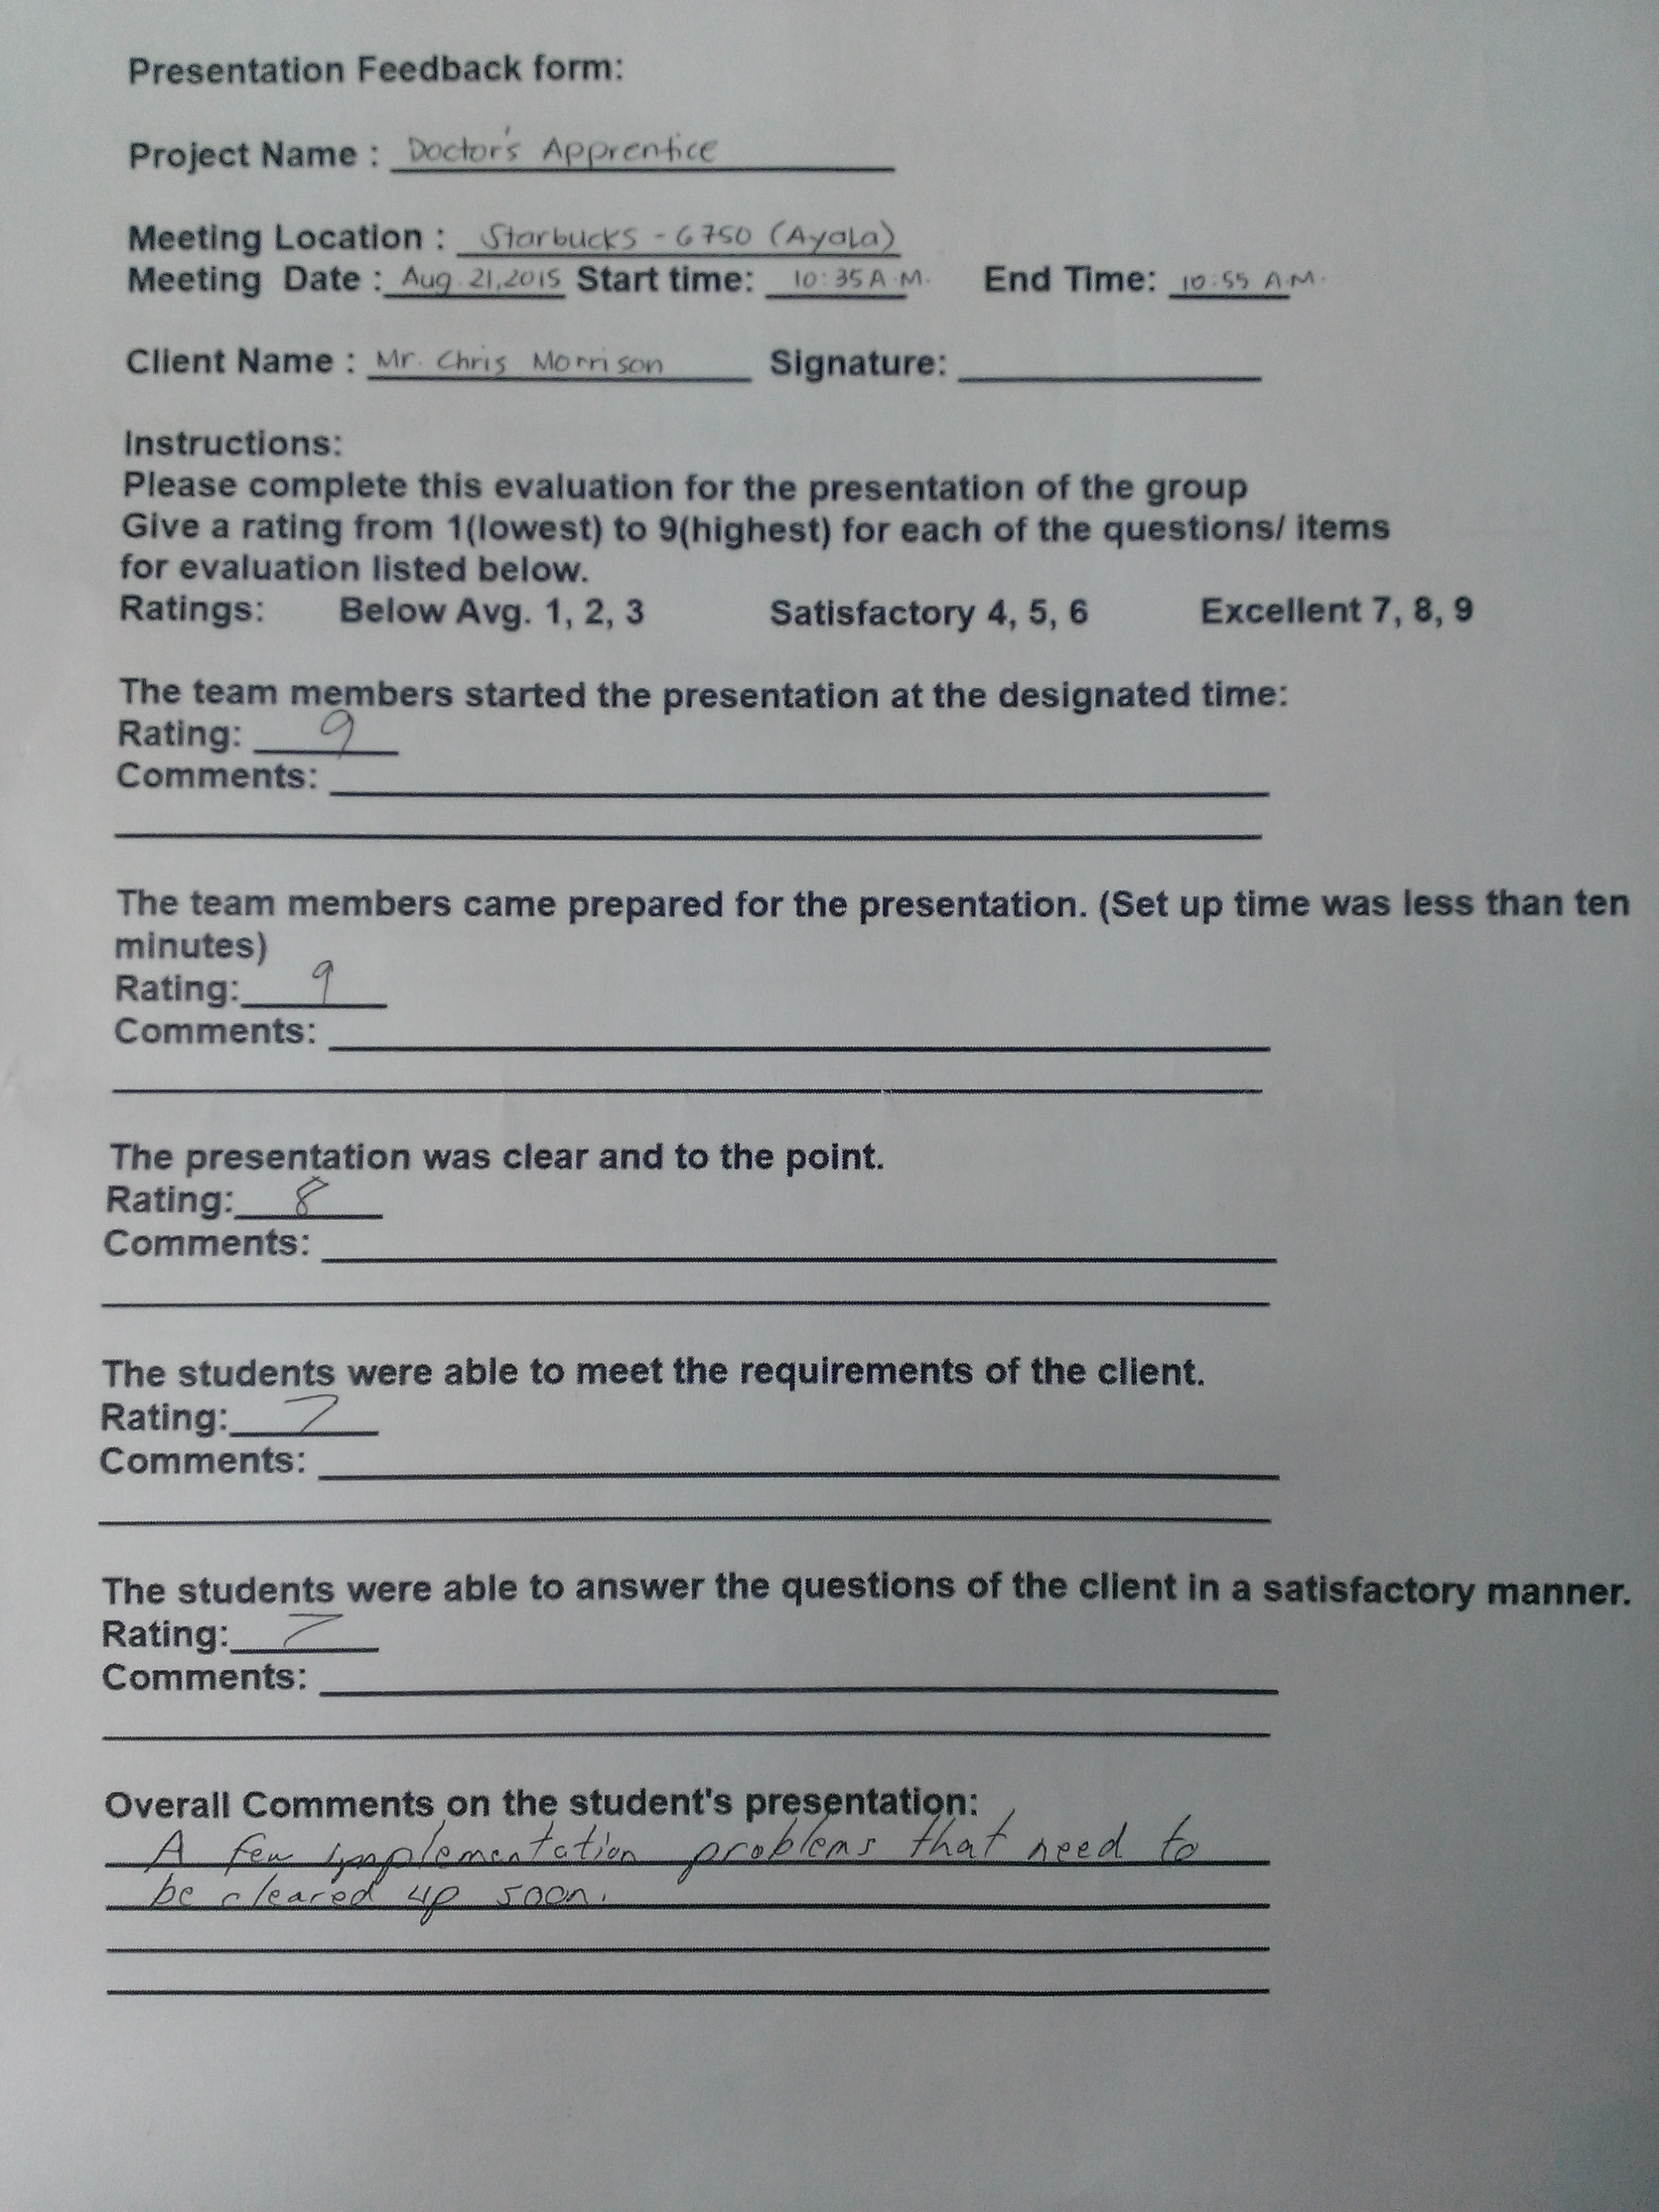 Presentation Feedback form:
Project Name : Doctor's Apprentice
Meeting Location : Starbucks - 6750 (Ayala)
Meeting Date : Aug. 21, 2015 Start time: 10:35 A.M. End Time: 10:55 A.M.
Client Name : Mr. Chris Morrison Signature:
Instructions:
Please complete this evaluation for the presentation of the group
Give a rating from 1(lowest) to 9(highest) for each of the questions/ items
for evaluation listed below.
Ratings: Below Avg. 1, 2, 3 Satisfactory 4, 5, 6 Excellent 7, 8, 9
The team members started the presentation at the designated time:
Rating: 9
Comments:
The team members came prepared for the presentation. (Set up time was less than ten
minutes)
Rating: 9
Comments:
The presentation was clear and to the point.
Rating: 8
Comments:
The students were able to meet the requirements of the client.
Rating: 7
Comments:
The students were able to answer the questions of the client in a satisfactory manner.
Rating: 7
Comments:
Overall Comments on the student's presentation:
A few implementation problems that need to
be cleared up soon.